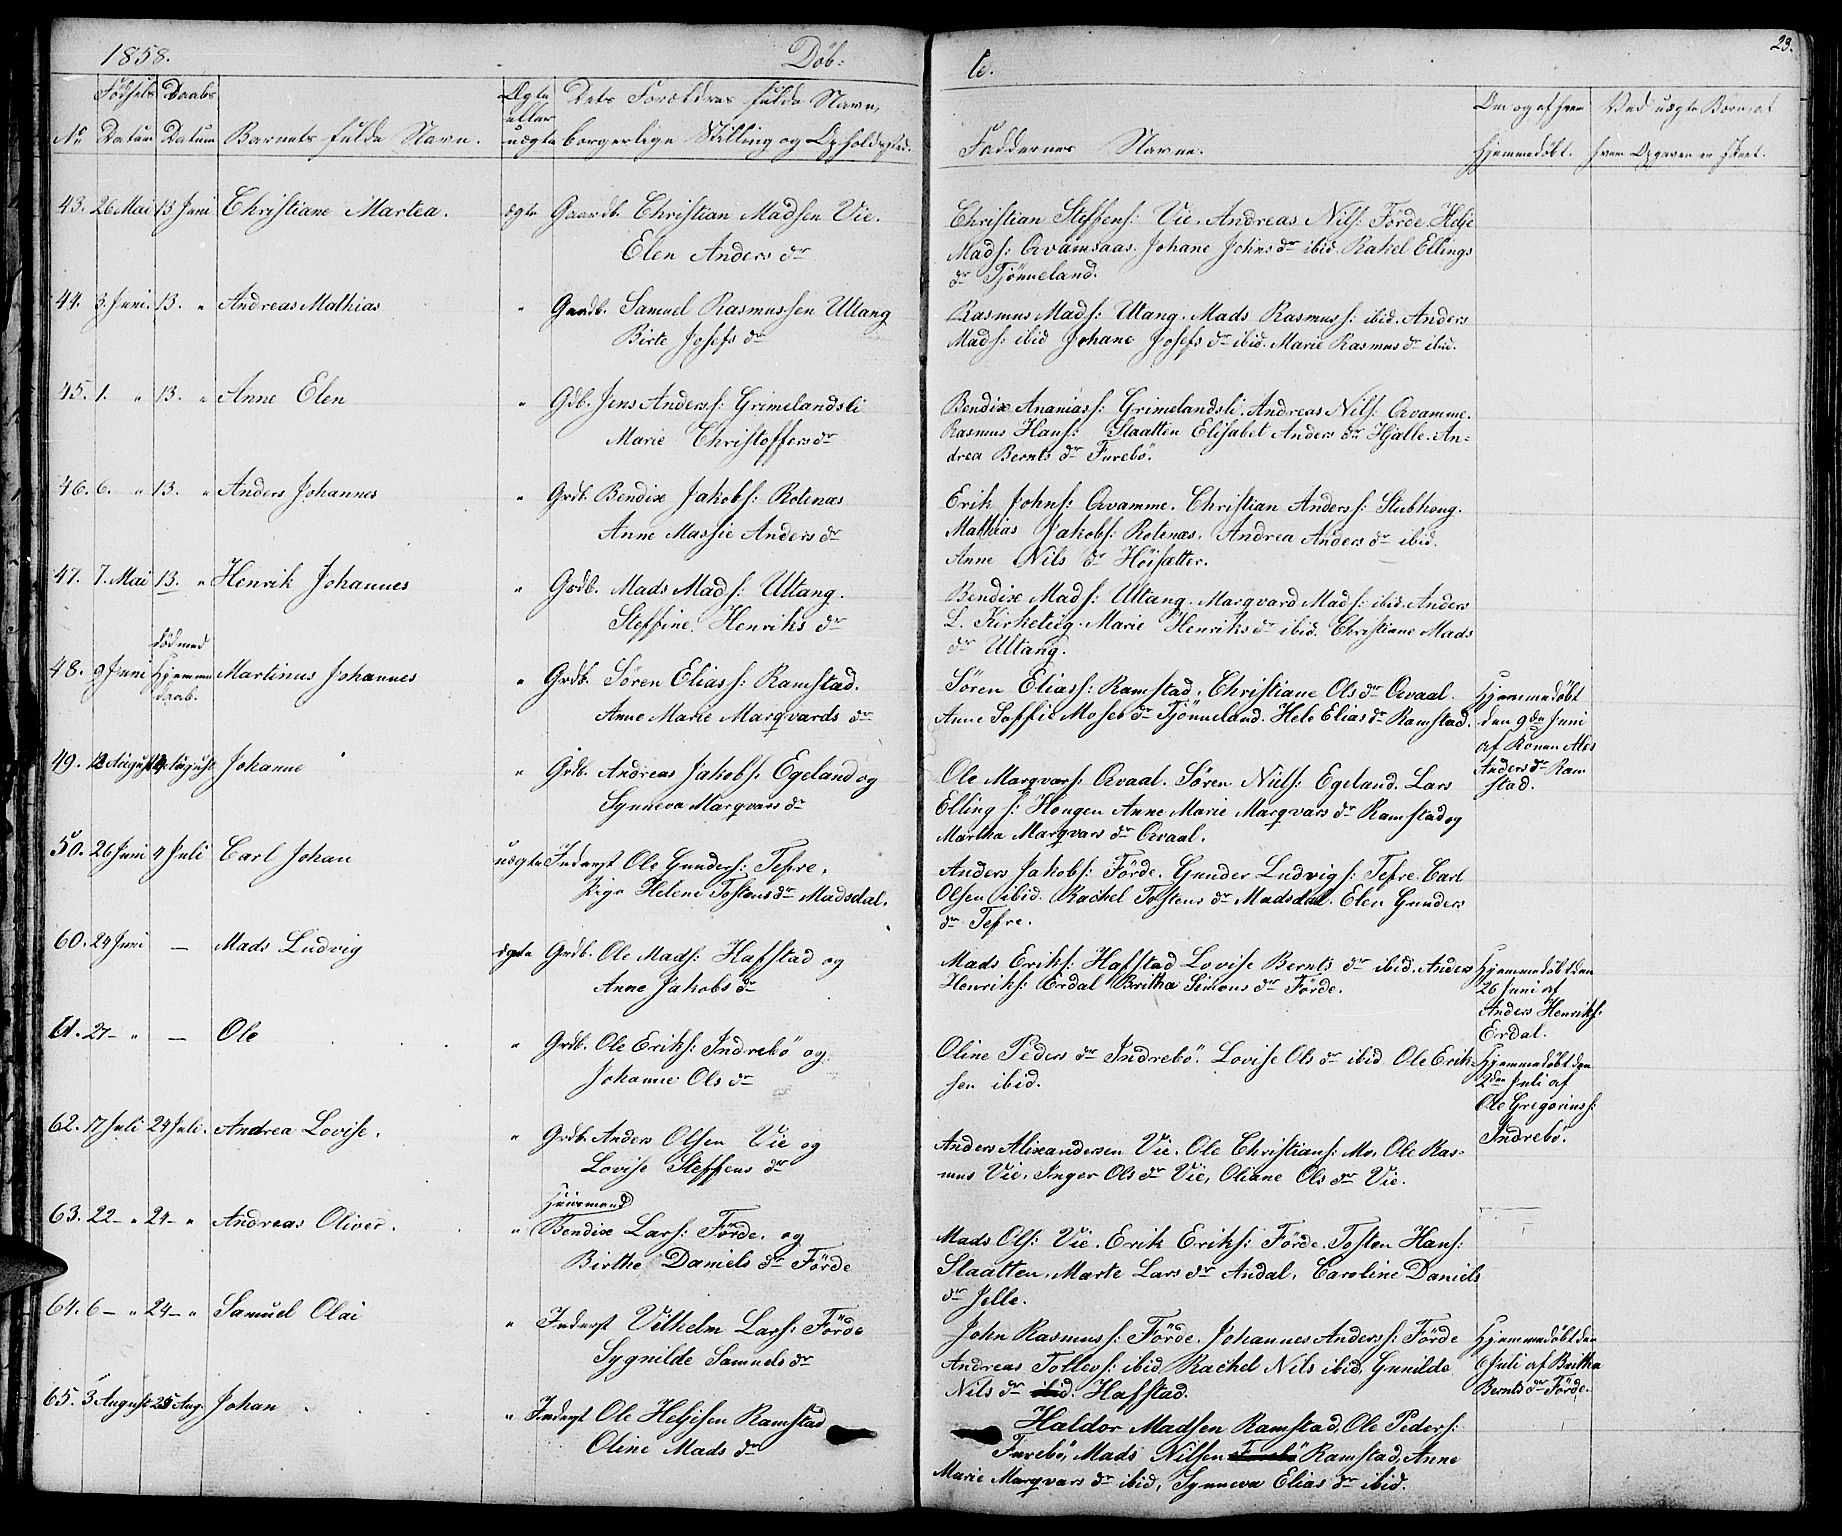 1858.
Døb-
te.
23.
No
Fødsels Datum
Daabs Datum
Barnets fulde Navn.
Ægte eller uægte
Dets Forældres fulde Navn, borgerlige Stilling og Opholdssted.
Faddernes Navne.
Om og af hvem Hjemmedøbt.
Ved uægte Børn, af hvem Opgaven er skeet.
43. 26 Mai 13 Juni Christiane Martea. ægte Gaardb. Christian Madsen Vie.
Elen Anders dr
Christian Steffens: Vie. Andreas Nils: Förde Helje
Mads: Qvamsaas. Johane Johns dr ibid. Rakel Ellings
dr Tjönneland.
44. 3 Juni. 13. " Andreas Mathias " Gaardb. Samuel Rasmussen Ultang
Birte Josefs dr
Rasmus Mads: Ultang. Mads Rasmuss: ibid. Anders
Mads: ibid Johane Josefs dr ibid. Marie Rasmus dr ibid.
45. 1. " 13. " Anne Elen " Gdb. Jens Anderss: Grimelandsli
Marie Christoffers dr
Bendix Ananiass: Grimelandsli. Andreas Nils: Qvamme.
Rasmus Hans: Slaatten Elisabet Anders dr Hjalle. An-
drea Bernts dr Furebö.
46. 6. " 13. " Anders Johannes " Grdb. Bendix Jakobs: Rotenæs
Anne Massie Anders dr
Erik Johns: Qvamme. Christian Anderss: Stubhoug.
Mathias Jakobs: Rotenæs. Andrea Anders dr ibid.
Anne Nils dr Höisætter.
47. 7. Mai 13. " Henrik Johannes " Grdb. Mads Mads: Ultang.
Steffine Henriks dr
Bendix Mads: Ultang. Marqvard Mads: ibid. Anders
L. Kirketeig. Marie Henriks dr ibid. Christiane Mads
dr Ultang.
48. 9 Juni Död med Hjemmedaab. Martinus Johannes " Grdb. Søren Eliass: Ramstad.
Anne Marie Marqvards dr
Søren Eliass: Ramstad. Christiane Ols dr Qvaal.
Anne Soffie Moses dr Tjönneland. Hele Elias dr Ramstad.
Hjemmedøbt
den 9de Juni
af Konen Ales
Anders dr Ram
stad.
49. August August Johanne " Grdb. Andreas Jakobs. Egeland og
Synneva Marqvars dr
Ole Marqvars: Qvaal. Søren Niels: Egeland. Lars
Ellings: Hougen Anne Marie Marqvars dr Ramstad og
Martha Marqvars dr Qvaal.
50. 26 Juni 4 Juli Carl Johan uægte Inderst Ole Gunders: Tefre.
Pige Helene Tostens dr Madsdal.
Anders Jakobs: Förde. Gunder Ludvigs: Tefre. Carl
Olsen ibid. Rachel Tostens dr Madsdal. Elen Gunders
dr Tefre.
60. 24 Juni — Mads Ludvig ægte Grdb. Ole Mads: Hafstad og
Anne Jakobs dr
Mads Eriks: Hafstad Lovise Bernts dr ibid. Anders
Henriks: Erdal Britha Simons dr Förde.
Hjemmedøbt den
26 Juni af
Anders Henriks:
Erdal.
61. 27 - " — Ole " Grdb. Ole Eriks: Indrebö og
Johanne Ols dr
Oline Peders dr Indrebö. Lovise Ols dr ibid. Ole Erik-
sen ibid.
Hjemmedøbt den
2den Juli af
Ole Gregoriuss:
Indrebö.
62. 17 Juli 24 Juli. Andrea Lovise. " Grdb. Anders Olsen Vie og
Lovise Steffens dr
Anders Alixandersen Vie. Ole Christians: Mo, Ole Ras-
mus Vie, Inger Ols dr Vie, Oliane Ols dr Vie.
63. 22 - " 24 - " Andreas Oliver. " Huusmand
Bendix Lars: Förde. og
Birthe Daniels dr Förde
Mads Ols: Vie. Erik Eriks: Förde. Tosten Hans:
Slaatten. Marte Lars dr Andal, Caroline Daniels
dr Jelle.
64. 6 - " 24 - " Samuel Olai " Inderst Vilhelm Lars: Förde
Sygnilde Samuels dr
John Rasmuss: Förde. Johannes Anderss: Förde
Andreas Tollevs: ibid Rachel Nils ibid, Gunilde
Nils dr ibid. Hafstad.
Hjemmedøbt den
6 Juli af Britha
Bernts dr Förde.
65. 3 August 25 Aug. Johan " Inderst Ole Heljesen Ramstad
Oline Mads dr
Haldor Madsen Ramstad, Ole Peders:
Furebö, Mads Nilsen Furebö Ramstad, Anne
Marie Marqvars dr ibid, Synneva Elias dr ibid.